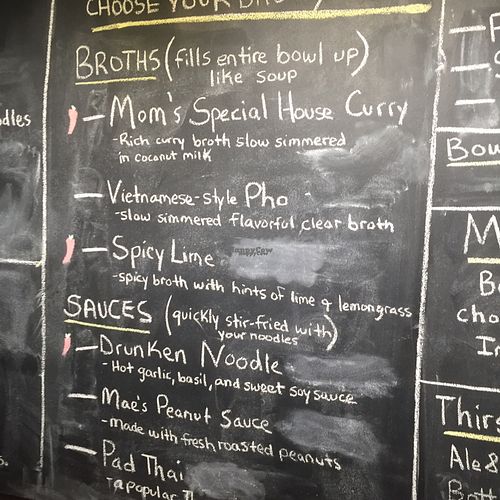 CHOOSE YOUR
BROTHS (fills entire bowl up)
like soup
— Mom's Special House Curry
-Rich curry broth slow simmered
in coconut milk
— Vietnamese-style Pho
-slow simmered flavorful clear broth
— Spicy Lime
-spicy broth with hints of lime & lemongrass
SAUCES (quickly stir-fried with)
your noodles
— Drunken Noodle
- Hot garlic, basil, and sweet soy sauce
— Mae's Peanut Sauce
-made with fresh roasted peanuts
— Pad Thai
-a popular
dles
s.
Bow
M
B
cho
I
Thirs
Ale &
Bott